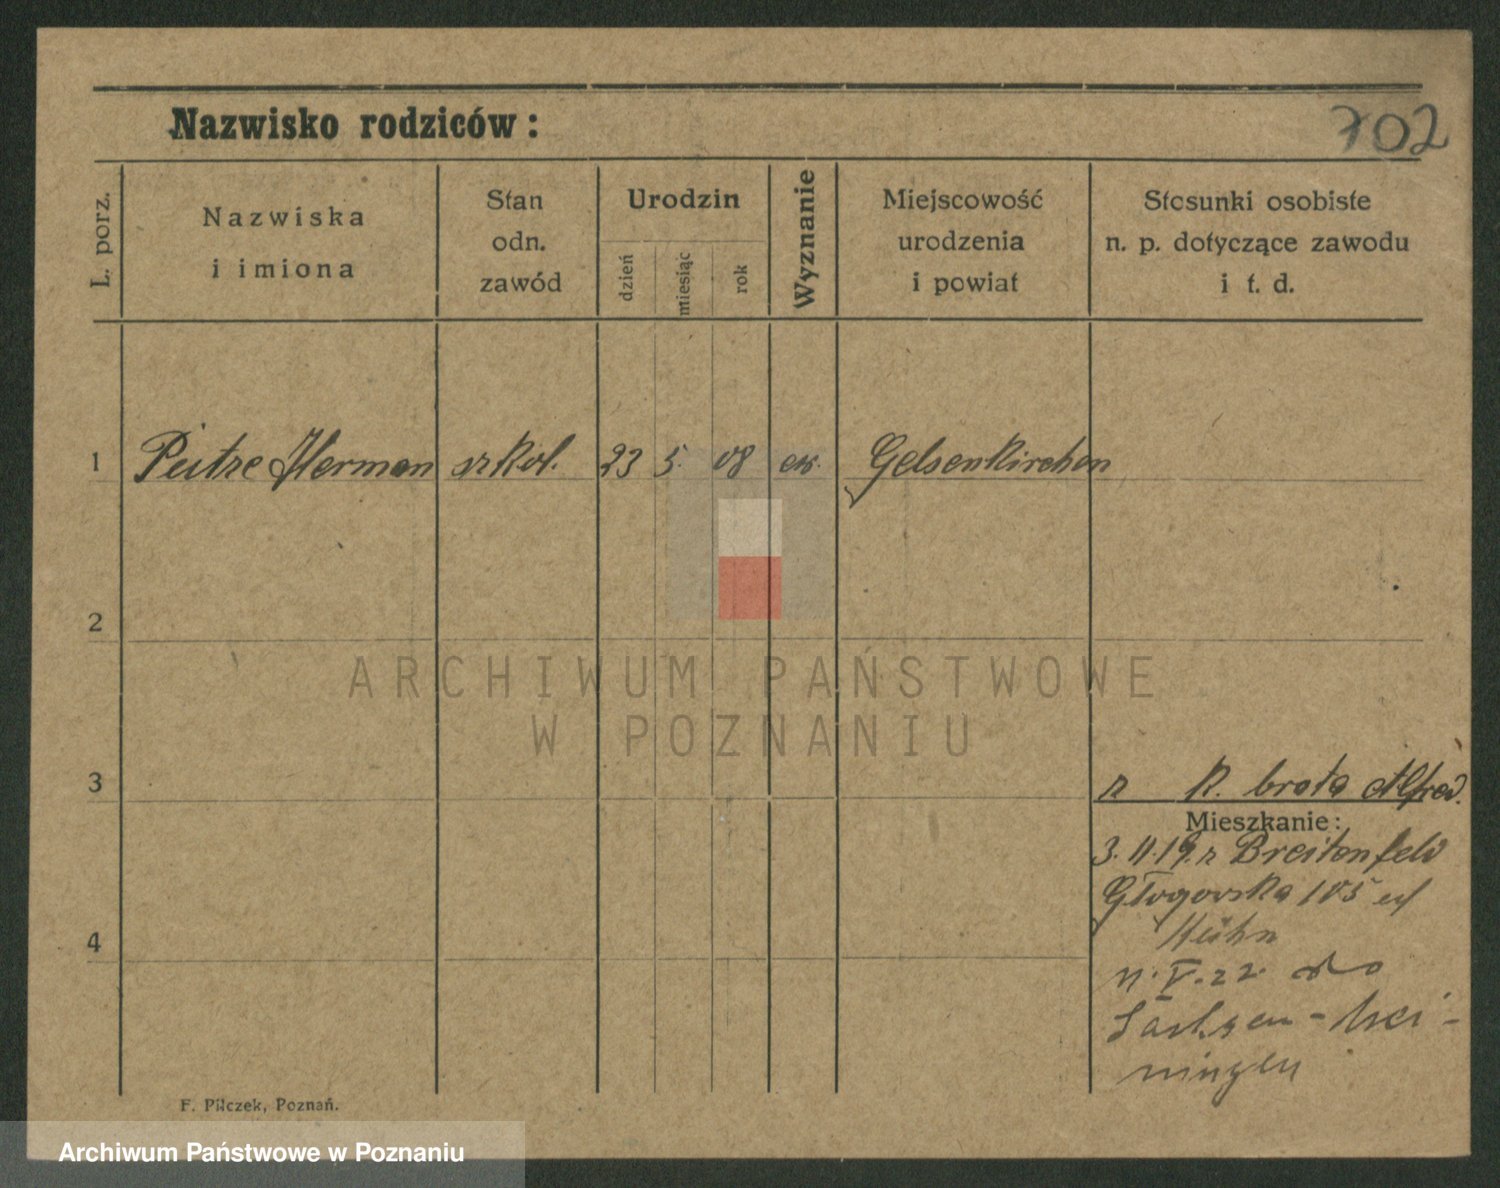 Nazwisko rodziców:
702
L. porz.
Nazwiska
i imiona
Stan
odn.
zawód
Urodzin
dzień
miesiąc
rok
Wyznanie
Miejscowość
urodzenia
i powiat
Stosunki osobiste
n. p. dotyczące zawodu
i t. d.
1 Peitze Herman szkol. 23 5. 08 ew. Gelsenkirchen
2
3
z k. brata Alfred.
Mieszkanie:
3.11.19. z Breitenfeld
Głogowska 105
4
11.V.22. do
Sachsen-Mei-
ningen
F. Pilczek, Poznań.
ARCHIWUM PAŃSTWOWE
W POZNANIU
Archiwum Państwowe w Poznaniu